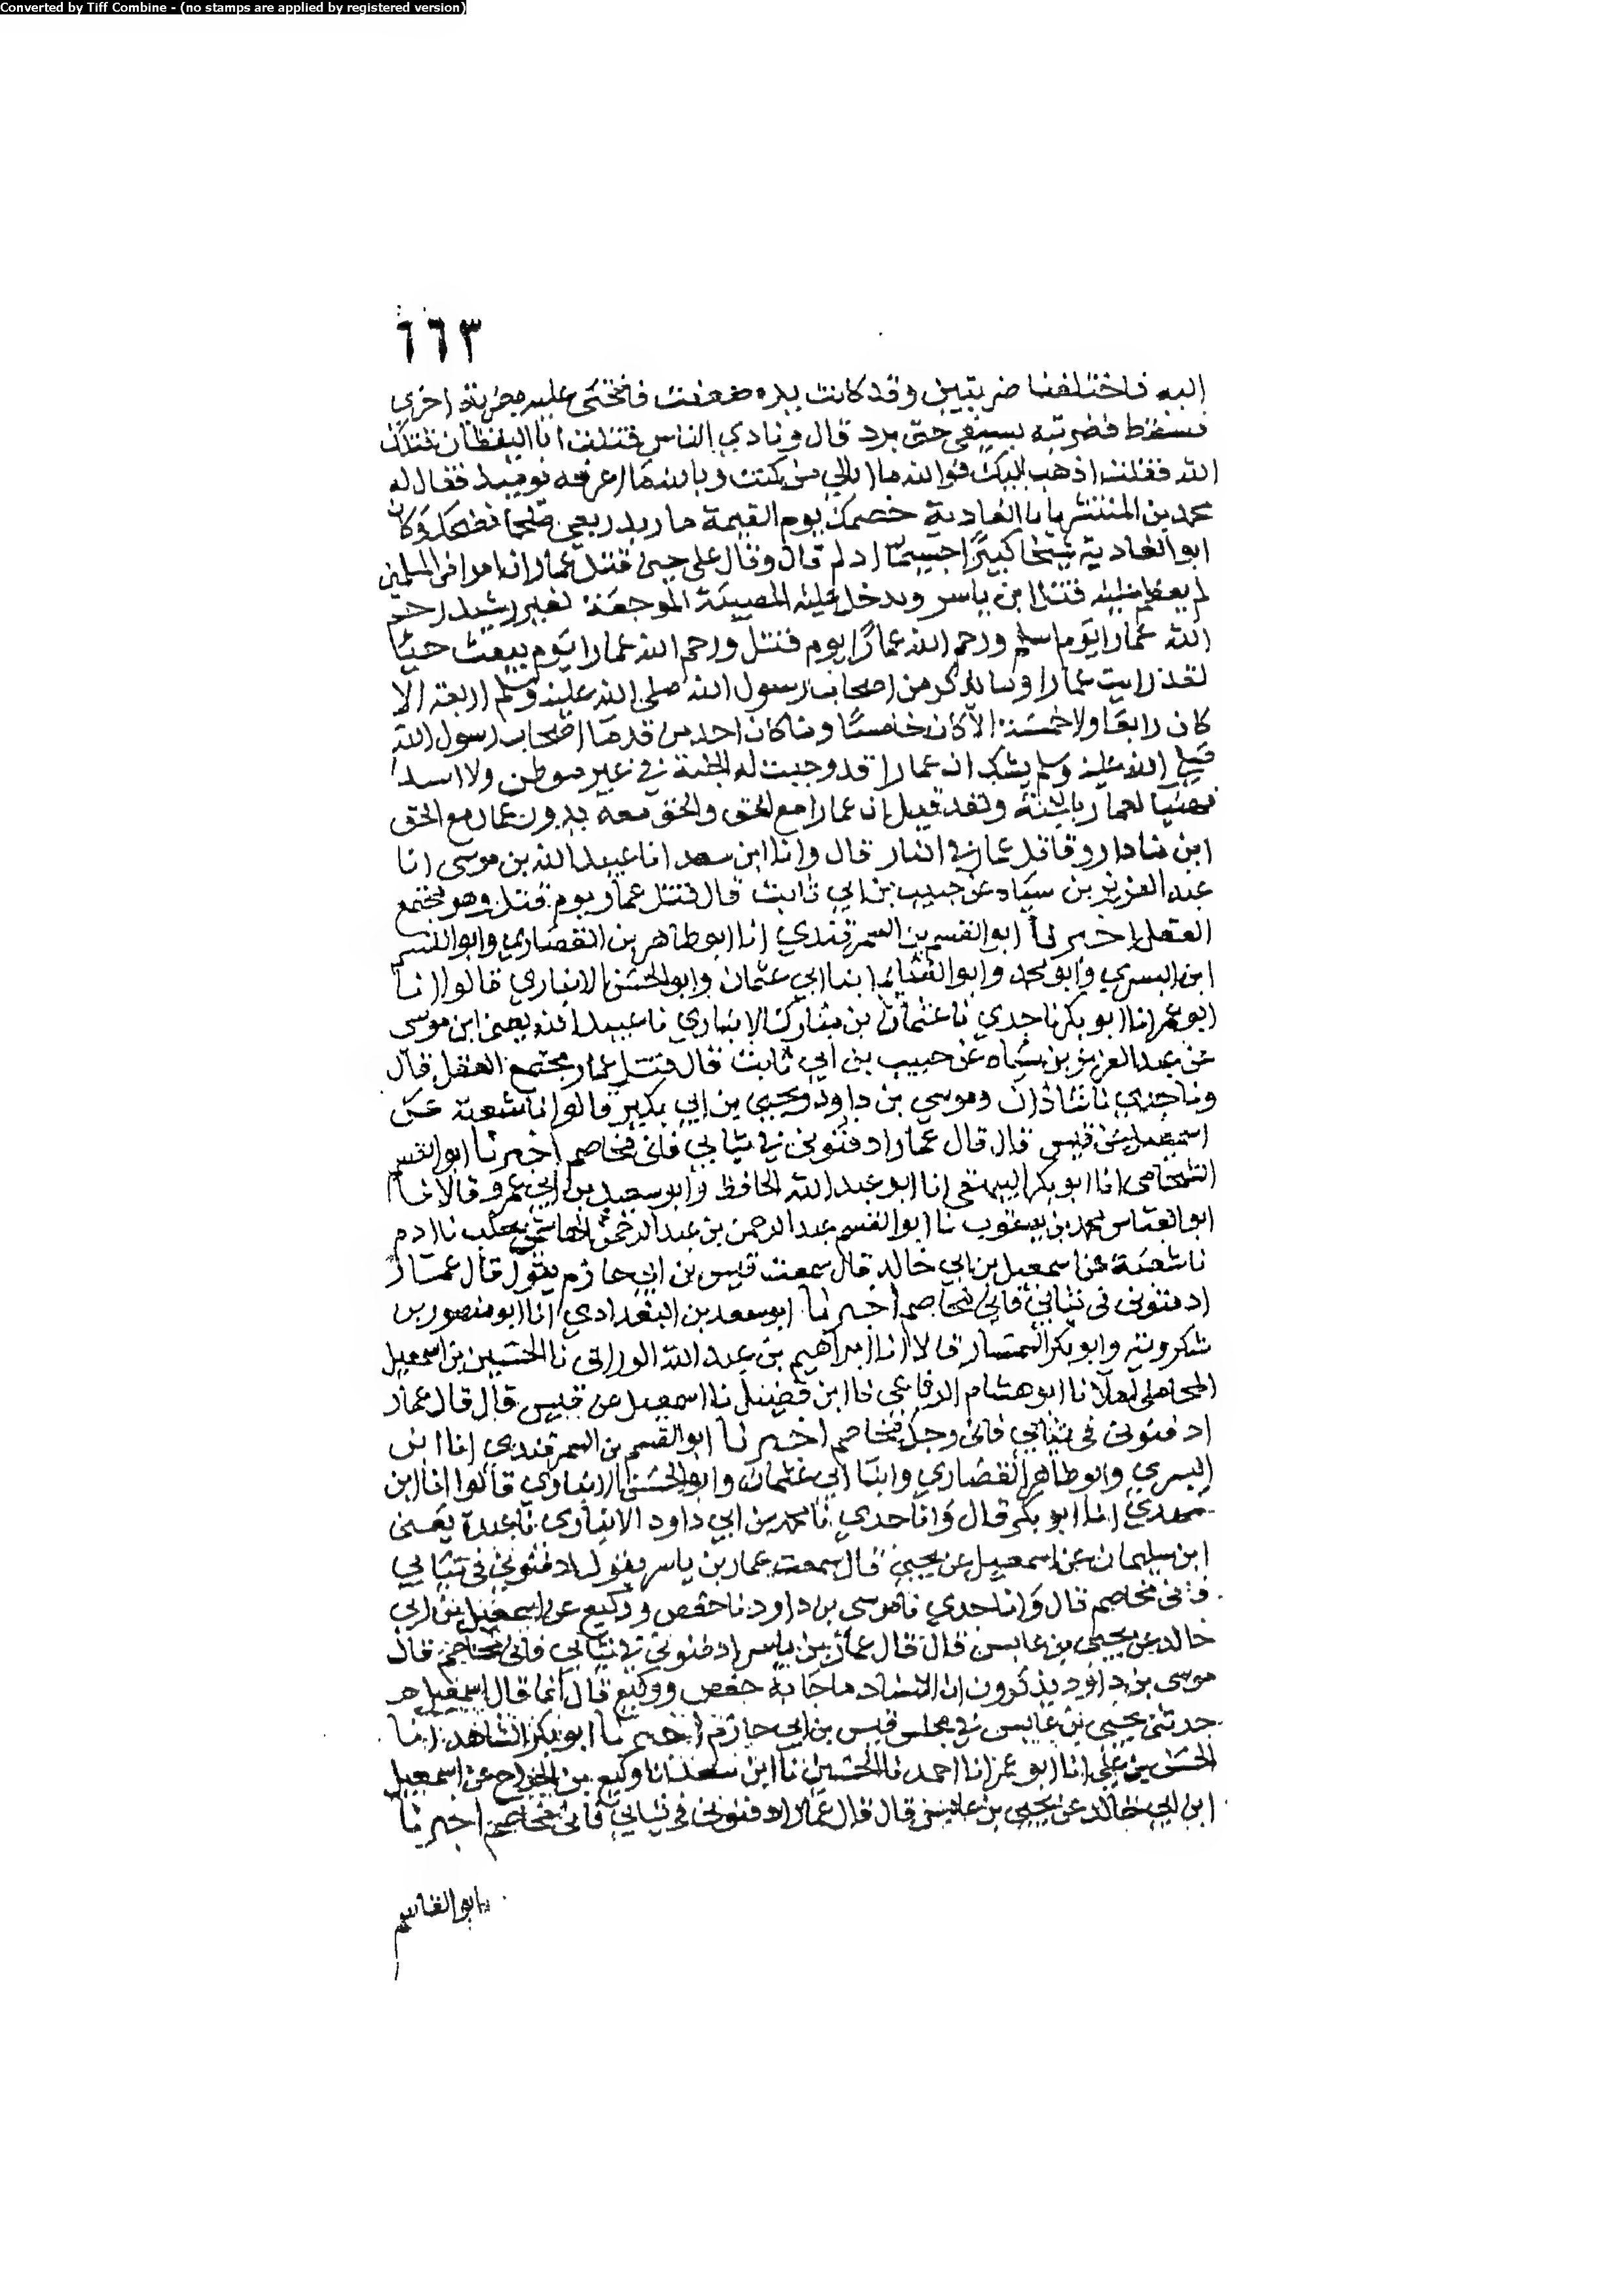 Converted by Tiff Combine - (no stamps are applied by registered version)
٦٦٣
اليه فاختلفنا ضربتين وقد كانت يده ضعفت فانحنى عليه بضربة اخرى
فسقط فضربته بسيفي حتى برد قال ونادي الناس قتلت ابا اليقظان قتلك
الله فقلت اذهب اليك فوالله ما ابالي من كنت وبالله ما اعرفه يوميذ فقال له
محمد بن المنتشر يابا الغادية خصمك يوم القيمة مازندر يعني ضخما فضحك وكان
ابو الغادية شيخا كبيرا جسيما ادلم قال وقال علي حين قتل عمار ان امرا من المسلمين
لم يعظم عليه قتل ابن ياسر ويدخل عليه المصيبة الموجعة لغير رشيد رحم
الله عمارا يوم اسلم ورحم الله عمارا يوم قتل ورحم الله عمارا يوم يبعث حيا
لقد رايت عمارا وما يذكر من اصحاب رسول الله صلى الله عليه وسلم اربعة الا
كان رابعا ولا خمسة الا كان خامسا وما كان احد من قدما اصحاب رسول الله
صلى الله عليه وسلم يشك ان عمارا قد وجبت له الجنة في غير موطن ولا اسد
فهنيا لعمار بالجنة ولقد قيل ان عمارا مع الحق والحق معه يدور عمار مع الحق
اين ما دار وقاتل عمار في النار قال وانا ابن سعد انا عبيد الله بن موسى انا
عبد العزيز بن سياه عن حبيب بن ابي ثابت قال قتل عمار يوم قتل وهو مجتمع
العقل اخبرنا ابو القسم بن السمرقندي انا ابو طاهر بن القصاري وابو القسم
ابن البسري وابو محمد وابو الغنايم ابنا ابي عثمان وابو الحسن الانباري قالوا انا
ابو عمر انا ابو بكر نا جدي نا عثمان بن مبارك الانباري نا عبيد الله يعني ابن موسى
عن عبد العزيز بن سياه عن حبيب بن ابي ثابت قال قتل عمار مجتمع العقل قال
ونا جدي نا شاذان وموسى بن داود ويحيى بن ابي بكير قالوا نا شعبة عن
اسمعيل عن قيس قال قال عمار ادفنوني في ثيابي فاني مخاصم اخبرنا ابو القسم
الشحامي انا ابو بكر البيهقي انا ابو عبد الله الحافظ وابو سعيد بن ابي عمرو قالا نا
ابو العباس محمد بن يعقوب نا ابو القسم عبد الرحمن بن عبد الرحمن الهاشمي بحلب نا ادم
نا شعبة عن اسمعيل بن ابي خالد قال سمعت قيس بن ابي حازم يقول قال عمار
ادفنوني في ثيابي فاني مخاصم اخبرنا ابو سعد بن البغدادي انا ابو منصور بن
شكرويه وابو بكر السمسار قالا انا ابراهيم بن عبد الله الوراق نا الحسين بن اسمعيل
المحاملي املا نا ابو هشام الرفاعي نا ابن فضيل نا اسمعيل عن قيس قال قال عمار
ادفنوني في ثيابي فاني رجل مخاصم اخبرنا ابو القسم بن السمرقندي انا ابن
البسري وابو طاهر القصاري وابنا ابي عثمان وابو الحسن الانباري قالوا انا ابن
مهدي انا ابو بكر قال وانا جدي نا محمد بن ابي داود الانباري نا عبدة يعني
ابن سليمان عن اسمعيل عن يحيى قال سمعت عمار بن ياسر يقول ادفنوني في ثيابي
فاني مخاصم قال وانا جدي نا موسى بن داود نا حفص ووكيع عن اسمعيل بن ابي
خالد عن يحيى بن عابس قال قال عمار بن ياسر ادفنوني في ثيابي فاني مخاصم قال
موسى بن داود يذكرون ان الاسناد ما جا به حفص ووكيع قال انما قال اسمعيل
حدثني يحيى بن عابس في مجلس قيس بن ابي حازم اخبرنا ابو بكر الشاهد انا
الحسن بن علي انا ابو عمر انا احمد نا الحسين نا ابن سعد نا وكيع بن الجراح عن اسمعيل
ابن ابي خالد عن يحيى بن عابس قال قال عمار ادفنوني في ثيابي فاني مخاصم اخبرنا
ابو القاسم